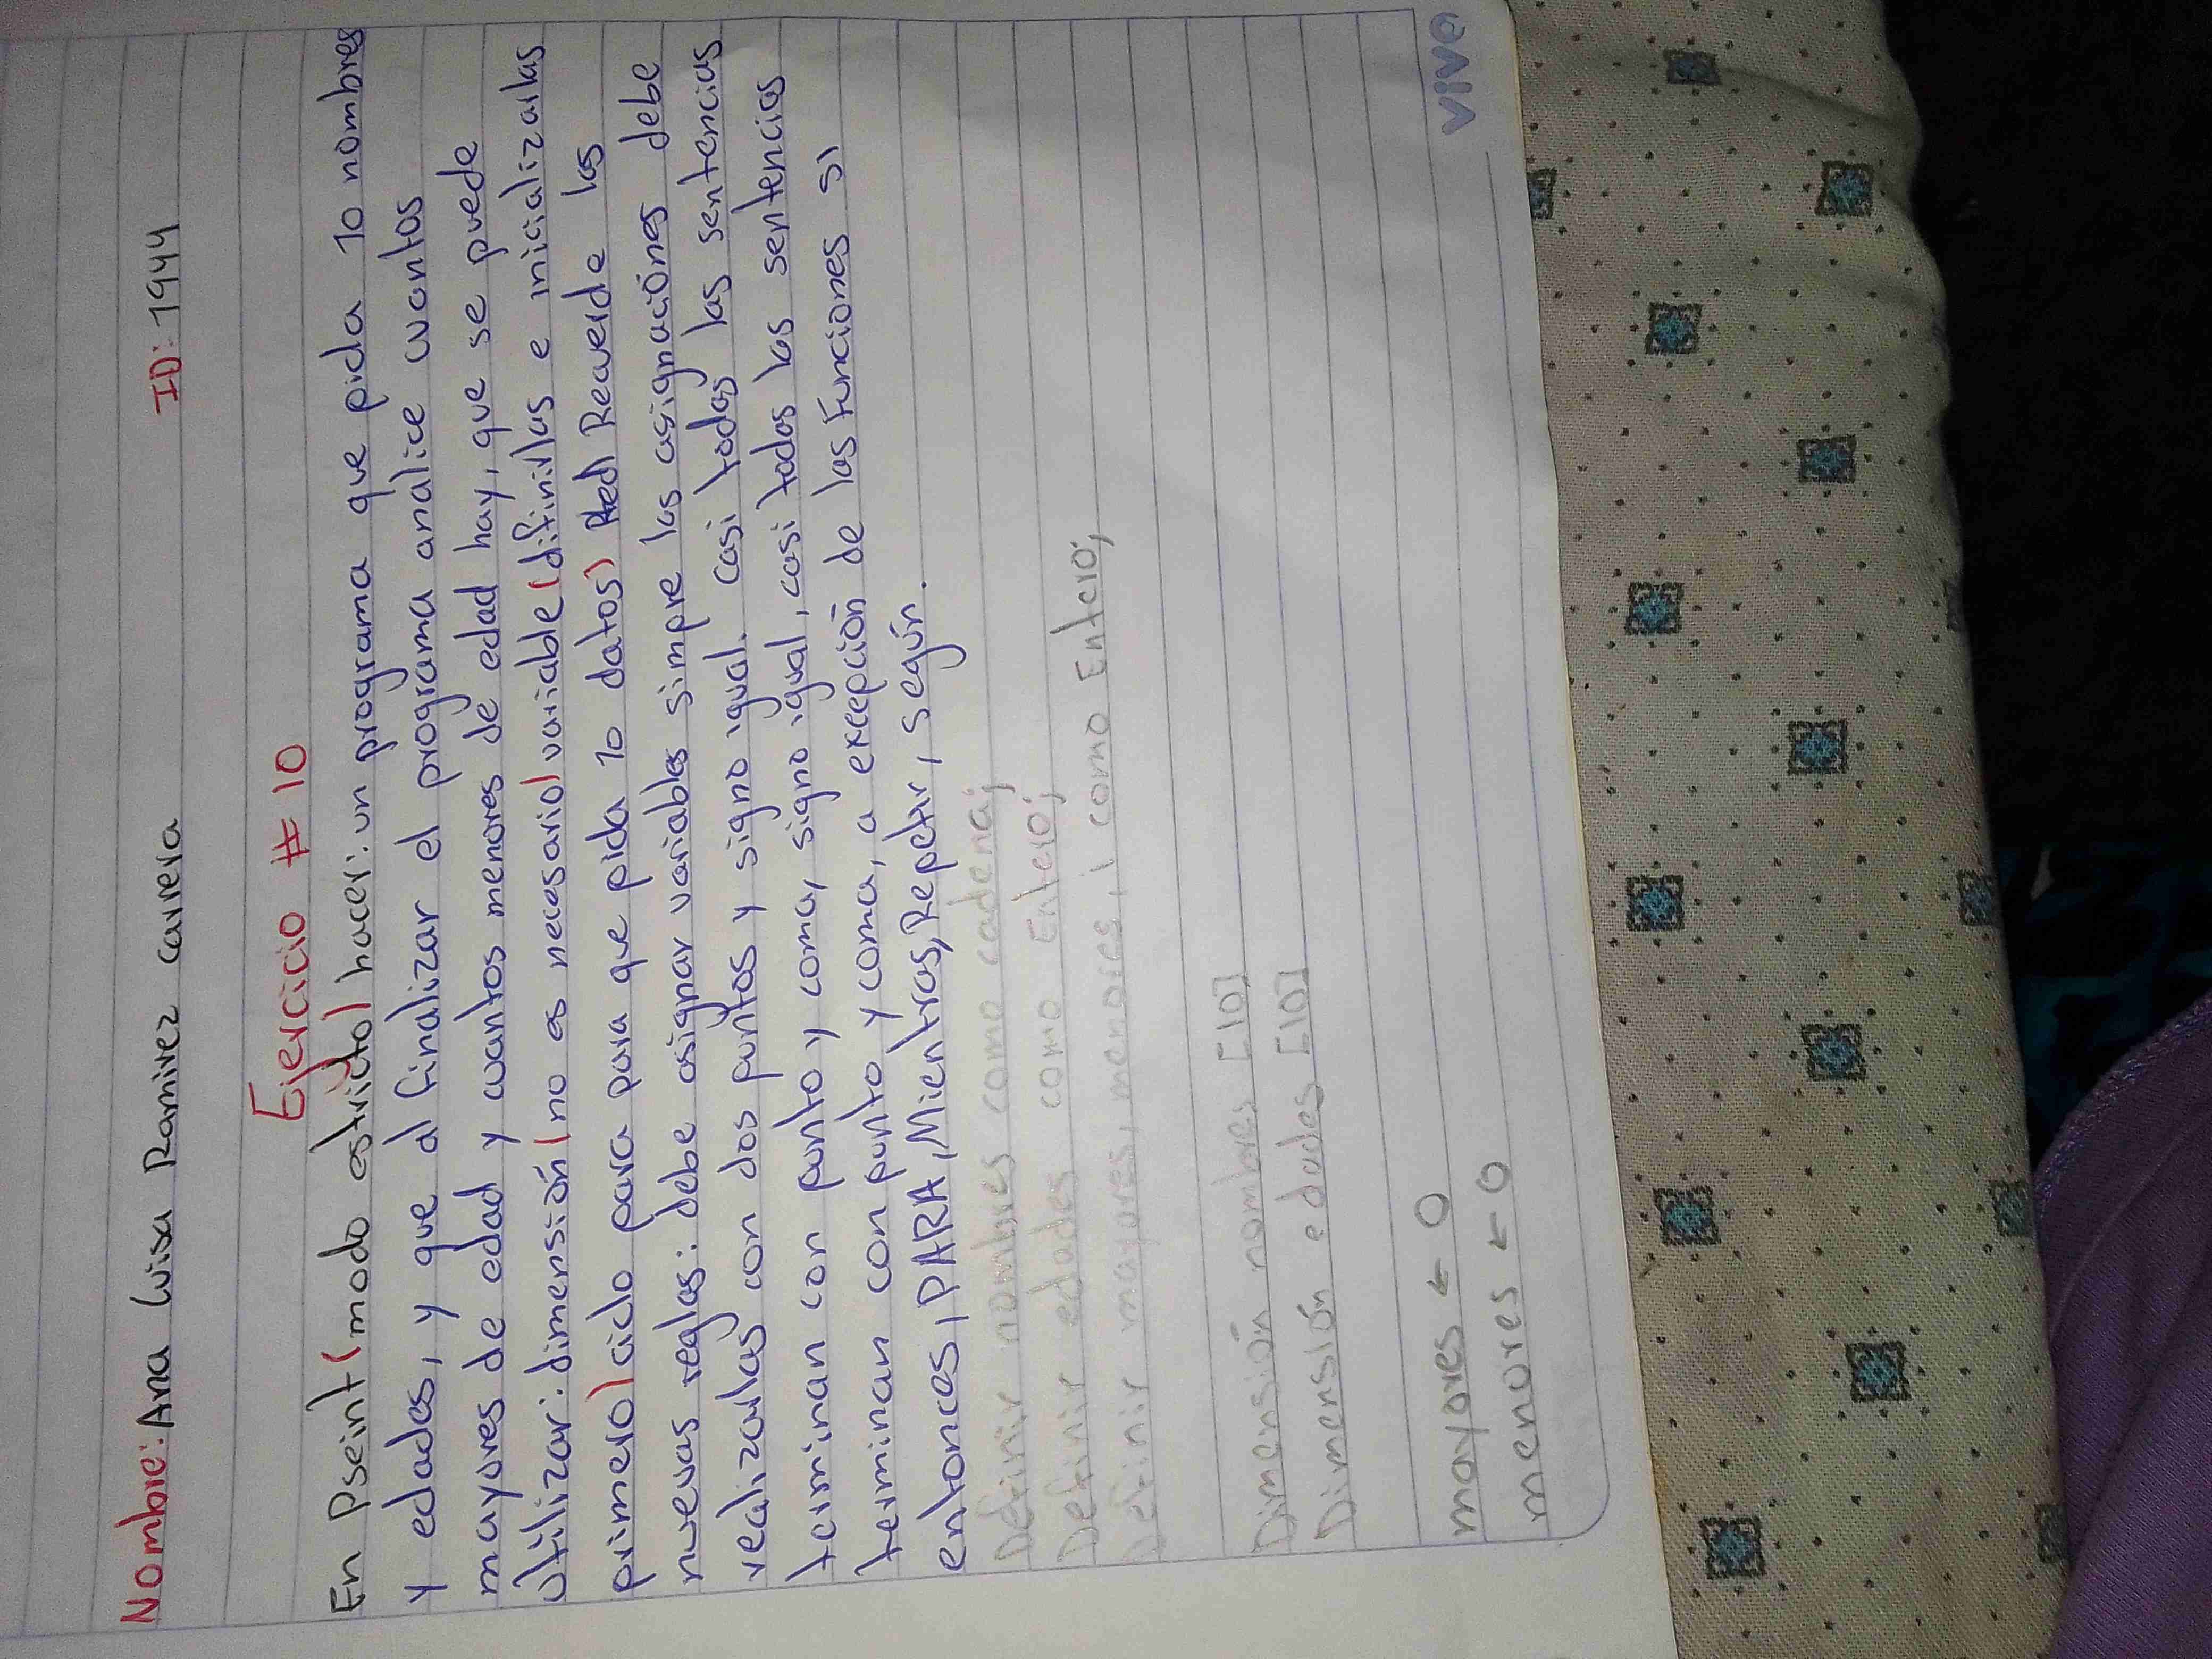 Nombre: Ana Luisa Ramirez carrera ID: 1944
Ejercicio # 10
En Pseint (modo estricto) hacer: un programa que pida 10 nombres
y edades, y que al finalizar el programa analice cuantos
mayores de edad y cuantos menores de edad hay, que se puede
Utilizar: dimensión (no es necesario) variable (difinirlas e inicializarlas
primero) ciclo para para que pida 10 datos) Recuerde las
nuevas reglas: debe asignar variables simpre las asignaciónes debe
realizarlas con dos puntos y signo igual. casi todas las sentencias
terminan con punto y coma, signo igual, casi todas las sentencias
terminan con punto y coma, a excepción de las Funciones si
entonces, PARA, Mientras, Repetir, según.
Definir nombres como cadena;
Definir edades como Entero;
Definir mayores, menores, i como Entero;
Dimensión nombres [10]
Dimensión edades [10]
mayores ← 0
menores ← 0
vivo